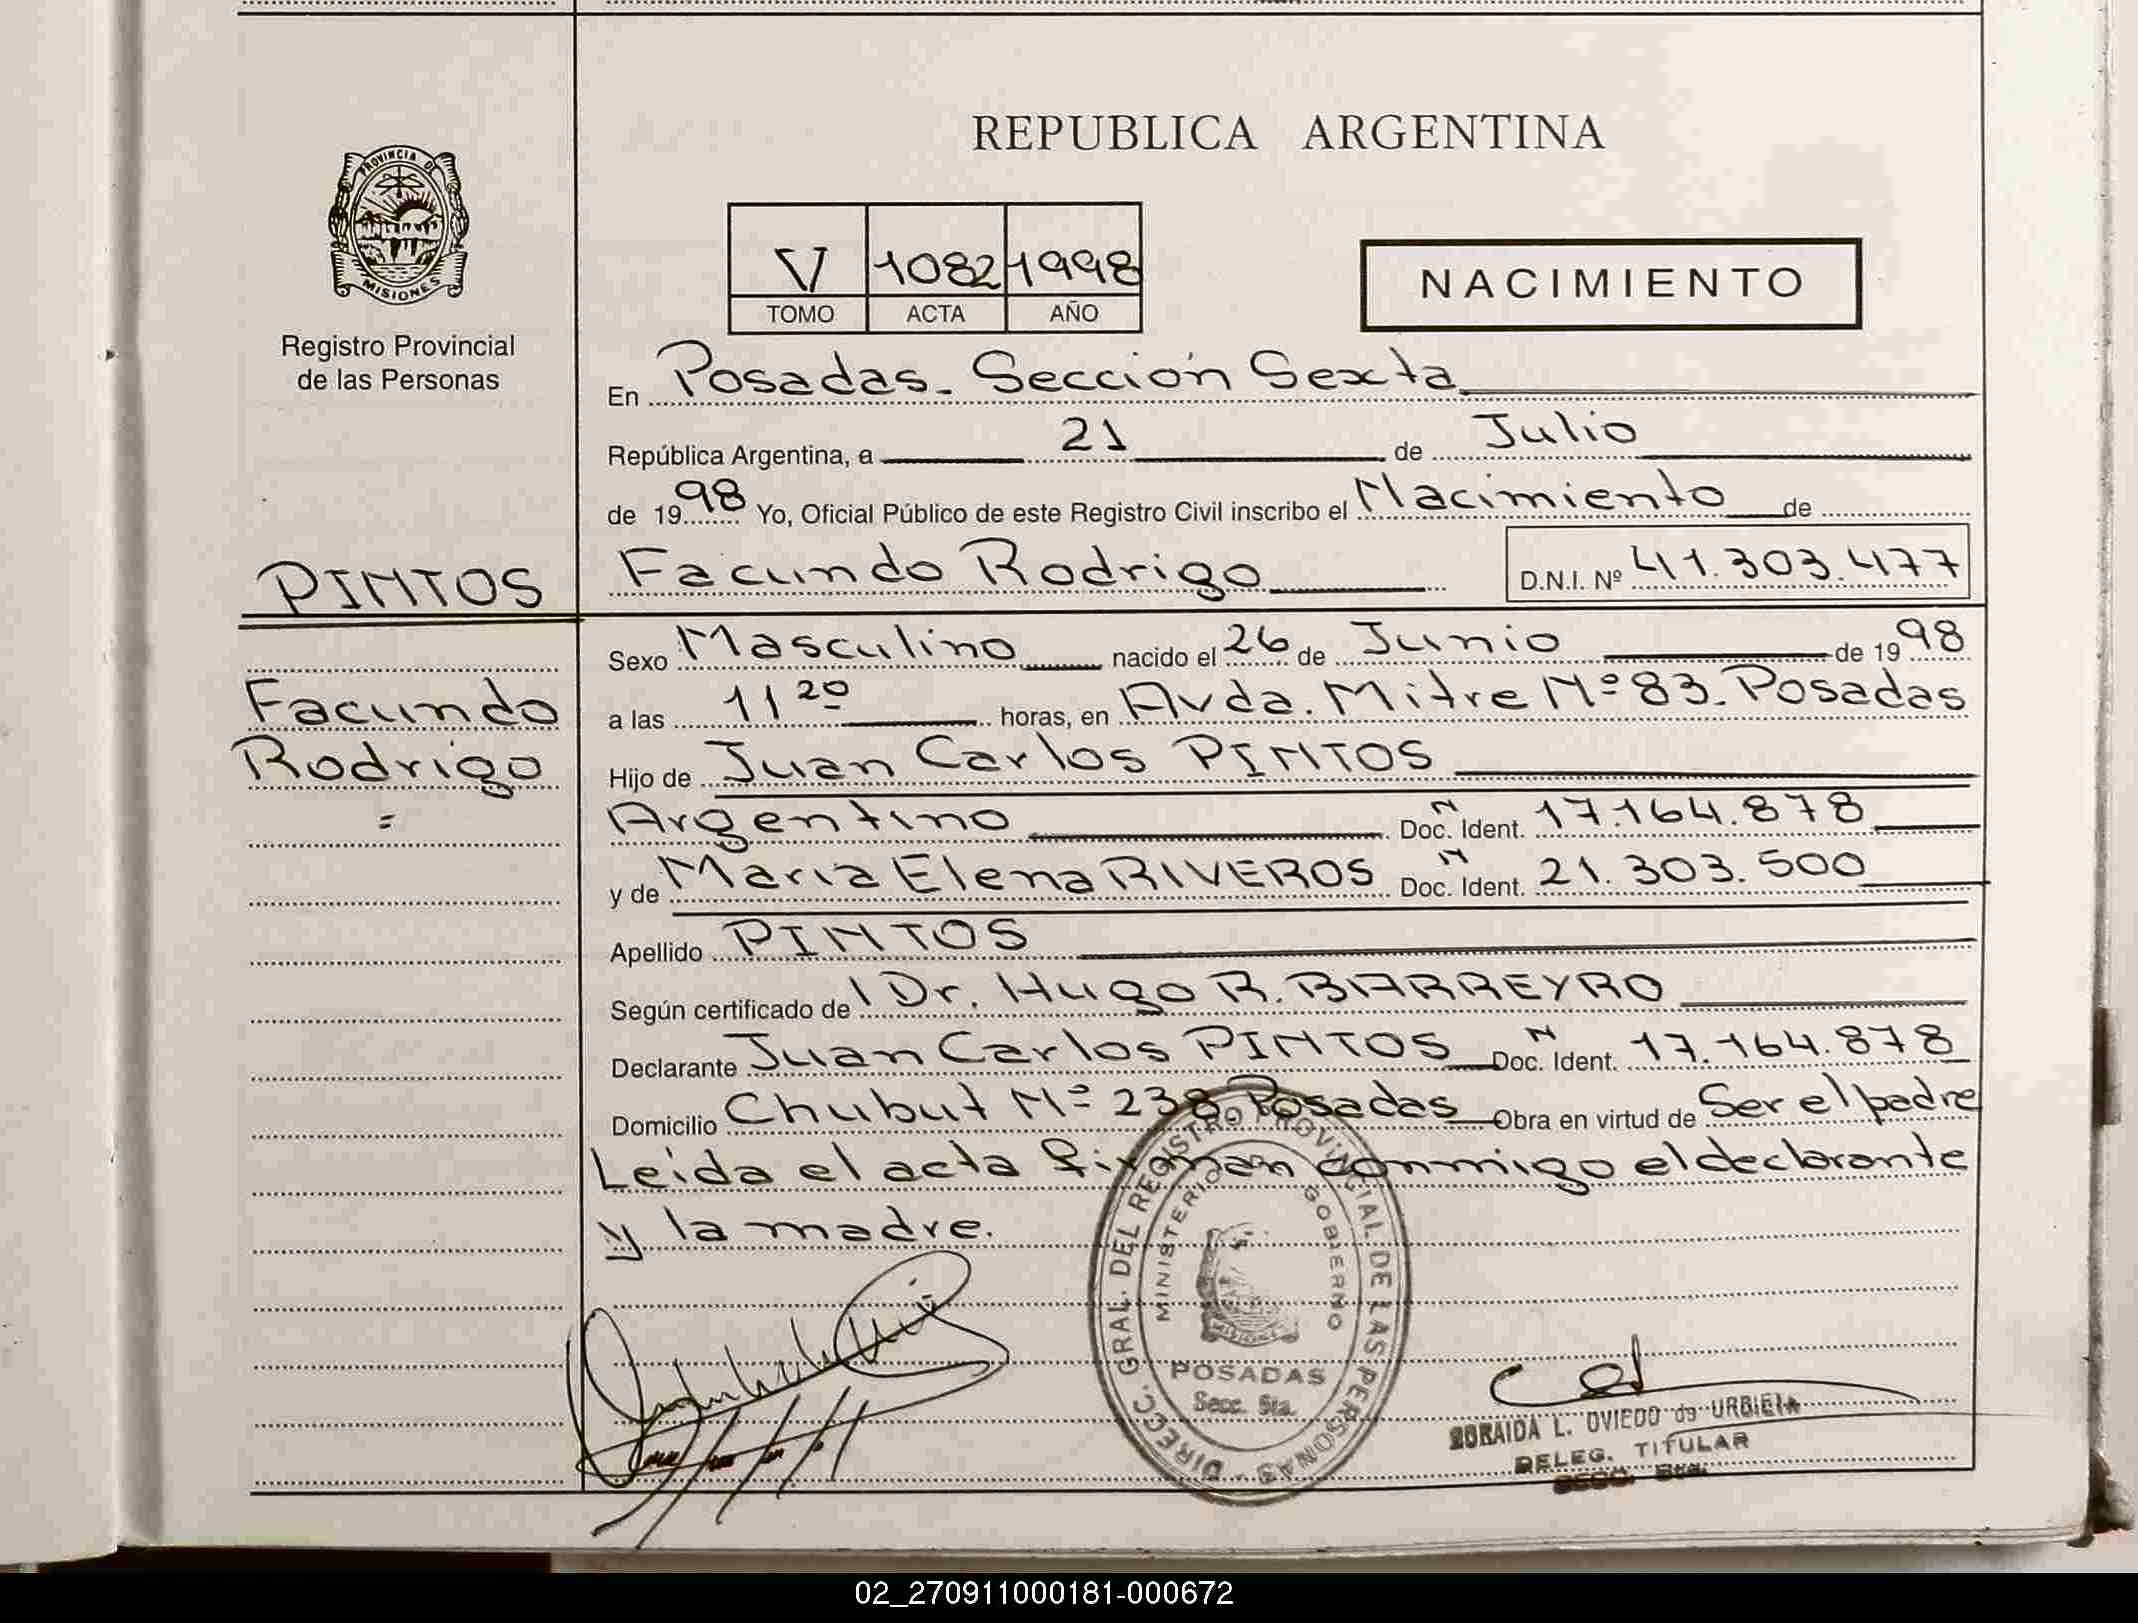 REPUBLICA ARGENTINA
PROVINCIA DE
MISIONES
Registro Provincial
de las Personas
V 1082 1998
TOMO ACTA AÑO
NACIMIENTO
En Posadas - Sección Sexta
República Argentina, a 21 de Julio
de 1998 Yo, Oficial Público de este Registro Civil inscribo el Nacimiento de
Facundo Rodrigo D.N.I. Nº 41.303.477
PINTOS
Facundo
Rodrigo
=
Sexo Masculino nacido el 26 de Junio de 1998
a las 11 20 horas, en Avda. Mitre Nº 83 - Posadas
Hijo de Juan Carlos PINTOS
Argentino Doc. N Ident. 17.164.878
y de Maria Elena RIVEROS Doc. N Ident. 21.303.500
Apellido PINTOS
Según certificado del Dr. Hugo R. BARREYRO
Declarante Juan Carlos PINTOS Doc. N Ident. 17.164.878
Domicilio Chubut Nº 238 Posadas Obra en virtud de Ser el padre
Leida el acta firman conmigo el declarante
y la madre.
DIRECC. GRAL. DEL REGISTRO PROVINCIAL DE LAS PERSONAS
MINISTERIO GOBIERNO
MISIONES
POSADAS
Secc. 6ta.
ZORAIDA L. OVIEDO de URBIETA
DELEG. TITULAR
SECC. 6ta.
02_270911000181-000672